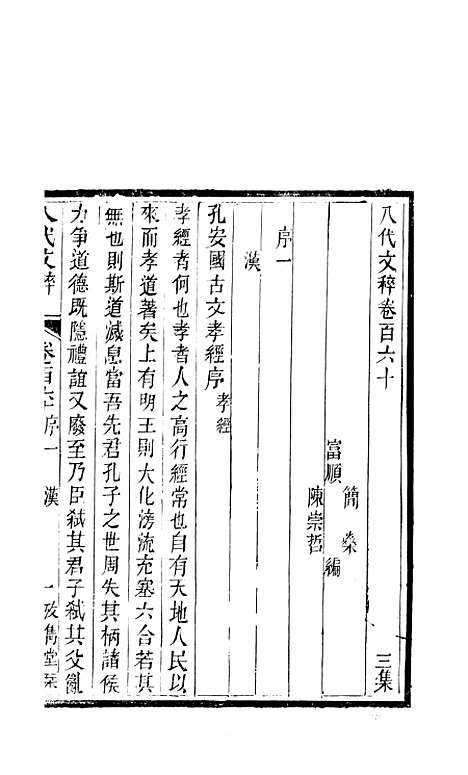 八代文稡卷百六十 三集
簡燊
富順 編
陳崇哲
序一
漢
孔安國古文孝經序孝經
孝經者何也孝者人之高行經常也自有天地人民以
來而孝道著矣上有明王則大化滂流充塞六合若其
無也則斯道滅息當吾先君孔子之世周失其柄諸侯
力爭道德既隱禮誼又廢至乃臣弒其君子弒其父亂
八代文稡 卷百六十 序一 漢 一 攷雋堂栞